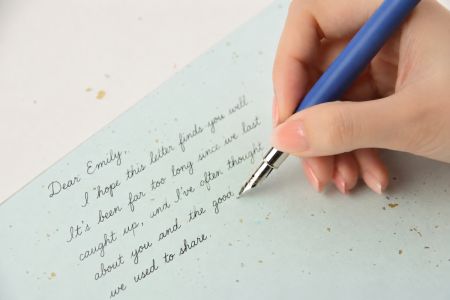 Dear Emily,
I hope this letter finds you well.
It's been far too long since we last
caught up, and I've often thought
about you and the good
we used to share.